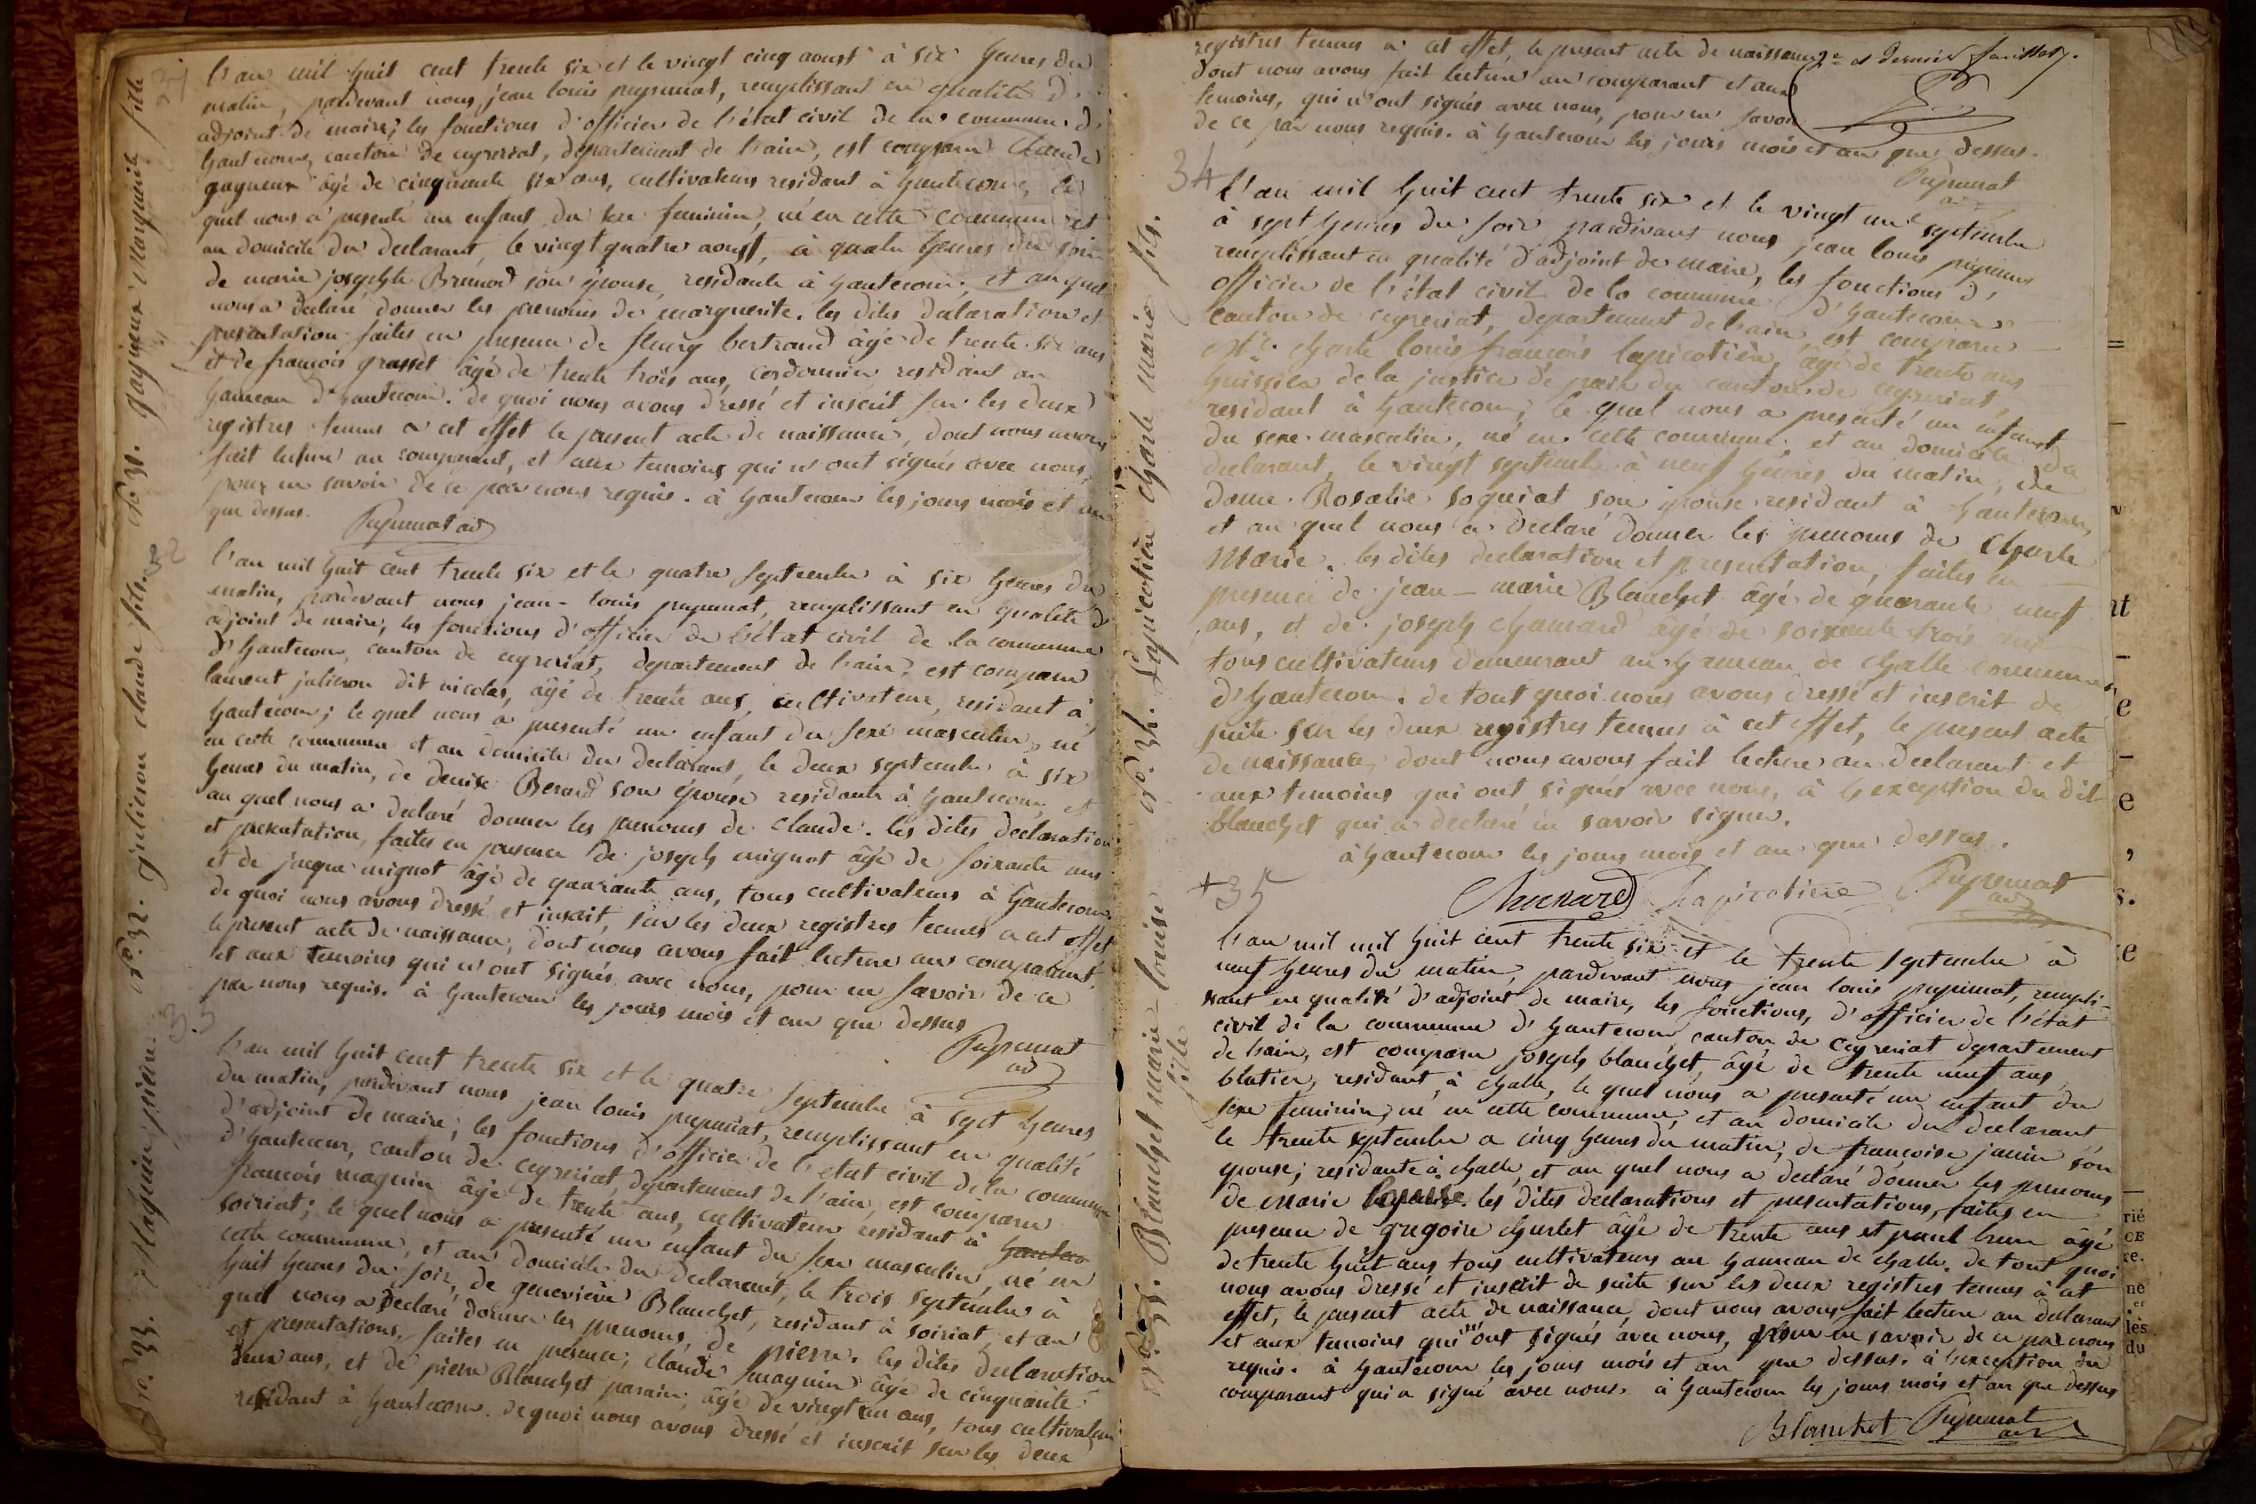 N.o 31. gagneux Marguerite fille
31
l'an mil huit cent trente six et le vingt cinq aoust à six heures du
matin, pardevant nous, jean louis puprunat, remplissant en qualité d'
adjoint de maire; les fonctions d'officier de l'état civil de la commune d'
hautecour, canton de ceyzeriat, departement de l'ain, est comparu Claude
gagneux âgé de cinquante six ans, cultivateur residant à hautecour, le
quel nous a presenté un enfant du sexe feminin, né en cette commune et
au domicile du declarant, le vingt quatre aoust, à quatre heures du soir
de marie josephte Brunod son épouse, residante à hautecour, et au quel
nous a declaré donner les prenoms de marguerite. les dites declaration et
presentation faites en presence de fleury bertrand âgé de trente six ans
et de françois grasset âgé de trente trois ans, cordonnier, residant au
hameau d'hautecour. de quoi nous avons dressé et inscrit sur les deux
registres tenus a cet effet le present acte de naissance, dont nous avons
fait lecture au comparant, et aux temoins qui n'ont signés avec nous,
pour ne savoir de ce par nous requis. à hautecour les jours mois et an
que dessus.
N.o 32. julieron claude fils.
32
l'an mil huit cent trente six et le quatre septembre à six heures du
matin, pardevant nous jean-louis puprunat, remplissant en qualité d'
adjoint de maire, les fonctions d'officier de l'état civil de la commune
d'hautecour, canton de ceyzeriat, departement de l'ain, est comparu
laurent julieron dit nicolas, âgé de trente ans, cultivateur, residant à
hautecour; le quel nous a presenté un enfant du sexe masculin, né
en cette commune et au domicile du declarant, le deux septembre à six
heures du matin, de denise Berard son épouse residante à hautecour, et
au quel nous a declaré donner les prenoms de claude. les dites declaration
et presentation, faites en presence de joseph mignot âgé de soixante ans
et de jacque mignot âgé de quarante ans, tous cultivateurs à hautecour.
de quoi nous avons dressé et inscrit, sur les deux registres tenus a cet effet
le present acte de naissance, dont nous avons fait lecture au comparant,
et aux temoins qui n'ont signés avec nous, pour ne savoir de ce
par nous requis. à hautecour les jours mois et an que dessus
N.o 33. Maguin pierre.
33
l'an mil huit cent trente six et le quatre septembre à sept heures
du matin, pardevant nous jean louis puprunat, remplissant en qualité
d'adjoint de maire; les fonctions d'officier de l'état civil de la commune
d'hautecour, canton de ceyzeriat, departement de l'ain, est comparu
françois maguin âgé de trente ans, cultivateur residant à hauteco
soiriat; le quel nous a presenté un enfant du sexe masculin, né en
cette commune, et au domicile du declarant, le trois septembre à
huit heures du soir, de genevieve Blanchet, residant à soiriat, et au
quel nous a declaré donner les prenoms, de pierre. les dites declaration
et presentations, faites en presence, claude maguin âgé de cinquante
deux ans, et de pierre Blanchet parain; âgé de vingt un ans, tous cultivateurs
residant à hautecour. de quoi nous avons dressé et inscrit sur les deux
registres tenus a cet effet, le present acte de naissance
dont nous avons fait lecture au comparant et aux
temoins, qui n'ont signés avec nous, pour ne savoir
de ce par nous requis. à hautecour les jours mois et an que dessus.
2.e et dernier feuillet.
N.o 34. Lapicotière charle marie fils.
34
l'an mil huit cent trente six et le vingt un septembre
à sept heures du soir pardevant nous jean louis puprunat
remplissant en qualité d'adjoint de maire, les fonctions d'
officier de l'état civil de la commune d'hautecour
canton de ceyzeriat, departement de l'ain, est comparu
charle louis françois lapicotière, âgé de trente ans
huissier de la justice de paix du canton de ceyzeriat,
residant à hautecour; le quel nous a presenté un enfant
du sexe masculin, né en cette commune, et au domicile du
declarant, le vingt septembre à neuf heures du matin, de
dame Rosalie soquiat son epouse residant à hautecour,
et au quel nous a declaré donner les prenoms de Charle
Marie. les dites declaration et presentation, faites en
presence de jean-marie Blanchet âgé de quarante neuf
ans, et de joseph chanard âgé de soixante trois ans
tous cultivateurs demeurant au hameau de challe commune
d'hautecour. de tout quoi nous avons dressé et inscrit de
suite sur les deux registres tenus à cet effet, le present acte
de naissance, dont nous avons fait lecture au declarant et
aux temoins qui ont signés avec nous, à l'exception du dit
blanchet qui a declaré ne savoir signer.
à hautecour les jours mois et an que dessus.
Lapicotiere
N.o 35. Blanchet marie-louise
fille
+35
l'an mil mil huit cent trente six et le trente septembre à
neuf heures du matin, pardevant nous jean louis puprunat, rempli-
ssant en qualité d'adjoint de maire, les fonctions, d'officier de l'état
civil de la commune d'hautecour, canton de ceyzeriat departement
de l'ain, est comparu joseph blanchet, âgé de trente neuf ans,
blatier, residant à challe, le quel nous a presenté un enfant du
sexe feminin, né en cette commune, et au domicile du declarant,
le trente septembre a cinq heures du matin, de françoise janin son
epouse; residante à challe, et au quel nous a declaré donner les prenoms
de Marie louise. les dites declarations et presentations, faites en
presence de gregoire churlet âgé de trente ans et paul brun âgé
de trente huit ans tous cultivateurs au hameau de challe. de tout quoi
nous avons dressé et inscrit de suite sur les deux registres tenus à cet
effet, le present acte de naissance, dont nous avons fait lecture au declarant
et aux temoins qui n'ont signés avec nous, pour ne savoir de ce par nous
requis. à hautecour les jours mois et an que dessus. à l'exception du
comparant qui a signé avec nous. à hautecour les jours mois et an que dessus
Blanchet